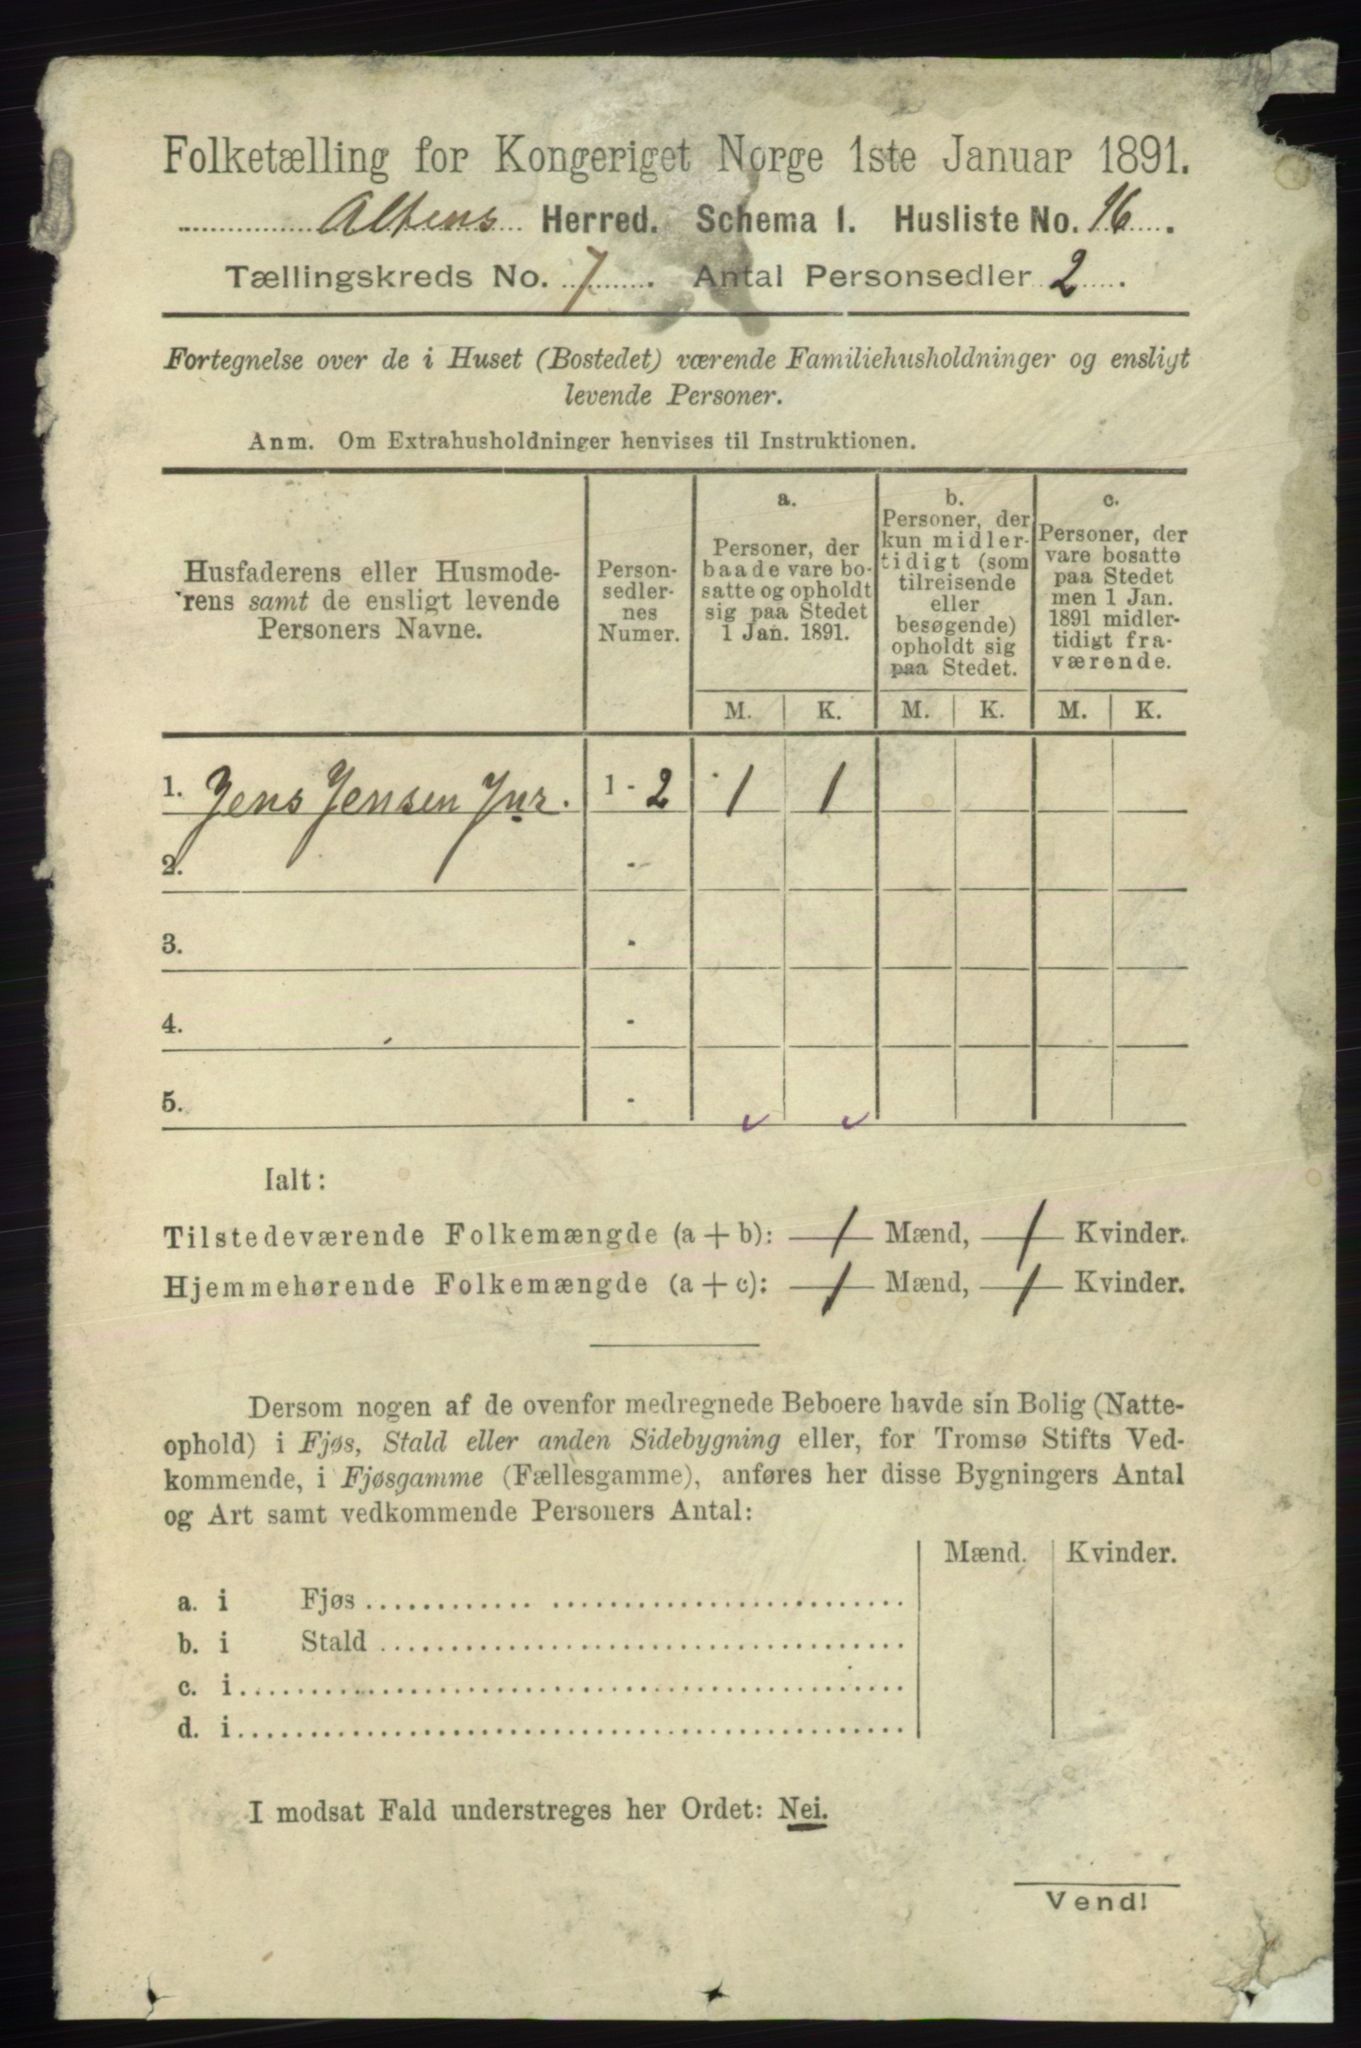 Folketælling for Kongeriget Norge 1ste Januar 1891.
Altens Herred. Schema 1. Husliste No. 16.
Tællingskreds No. 7. Antal Personsedler 2.
Fortegnelse over de i Huset (Bostedet) værende Familiehusholdninger og ensligt
levende Personer.
Anm. Om Extrahusholdninger henvises til Instruktionen.
Husfaderens eller Husmode-
rens samt de ensligt levende
Personers Navne.
Person-
sedler-
nes
Numer.
a.
Personer, der
baade vare bo-
satte og opholdt
sig paa Stedet
1 Jan. 1891.
b.
Personer, der
kun midler-
tidigt (som
tilreisende
eller
besøgende)
opholdt sig
paa Stedet.
c.
Personer, der
vare bosatte
paa Stedet
men 1 Jan.
1891 midler-
tidigt fra-
værende.
M. K. M. K. M. K.
1. Jens Jensen Jnr. 1 - 2 1 1
2. -
3. -
4. -
5. -
Ialt:
Tilstedeværende Folkemængde (a + b): 1 Mænd, 1 Kvinder.
Hjemmehørende Folkemængde (a + c): 1 Mænd, 1 Kvinder.
Dersom nogen af de ovenfor medregnede Beboere havde sin Bolig (Natte-
ophold) i Fjøs, Stald eller anden Sidebygning eller, for Tromsø Stifts Ved-
kommende, i Fjøsgamme (Fællesgamme), anføres her disse Bygningers Antal
og Art samt vedkommende Personers Antal:
Mænd. Kvinder.
a. i Fjøs
b. i Stald
c. i
d. i
I modsat Fald understreges her Ordet: Nei.
Vend!